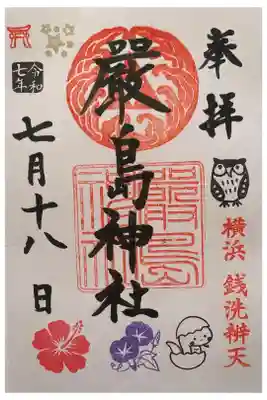 奉拝
横浜 銭洗辨天
嚴島神社
嚴島神社
令和
七年
七月十八日